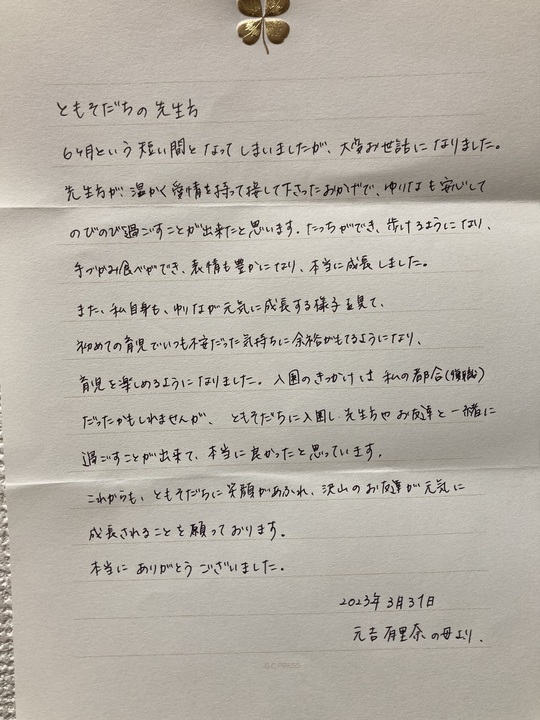 ともそだちの先生方
6ヶ月という短い間となってしまいましたが、大変お世話になりました。
先生方が、温かく愛情を持って接して下さったおかげで、ゆりなも安心して
のびのび過ごすことが出来たと思います。たっちができ、歩けるようになり、
手づかみ食べができ、表情も豊かになり、本当に成長しました。
また、私自身も、ゆりなが元気に成長する様子を見て、
初めての育児でいつも不安だった気持ちに余裕がもてるようになり、
育児を楽しめるようになりました。入園のきっかけは私の都合(復職)
だったかもしれませんが、ともそだちに入園し、先生方やお友達と一緒に
過ごすことが出来て、本当に良かったと思っています。
これからも、ともそだちに笑顔があふれ、沢山のお友達が元気に
成長されることを願っております。
本当にありがとうございました。
2023年3月31日
元吉有里奈の母より.
G.C.PRESS